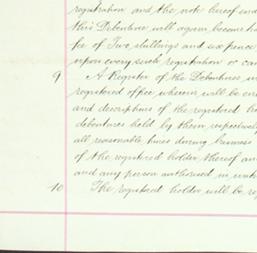 registration and the note thereof end
this Debenture will again become h
fee of Two shillings and six pence
upon every such registration or can
9 A Register of the Debentures w
registered office wherein will be en
and descriptions of the registered h
debentures held by them respectively
all reasonable times during business
of the registered holder thereof an
and any person authorised in writ
10 The registered holder will be re